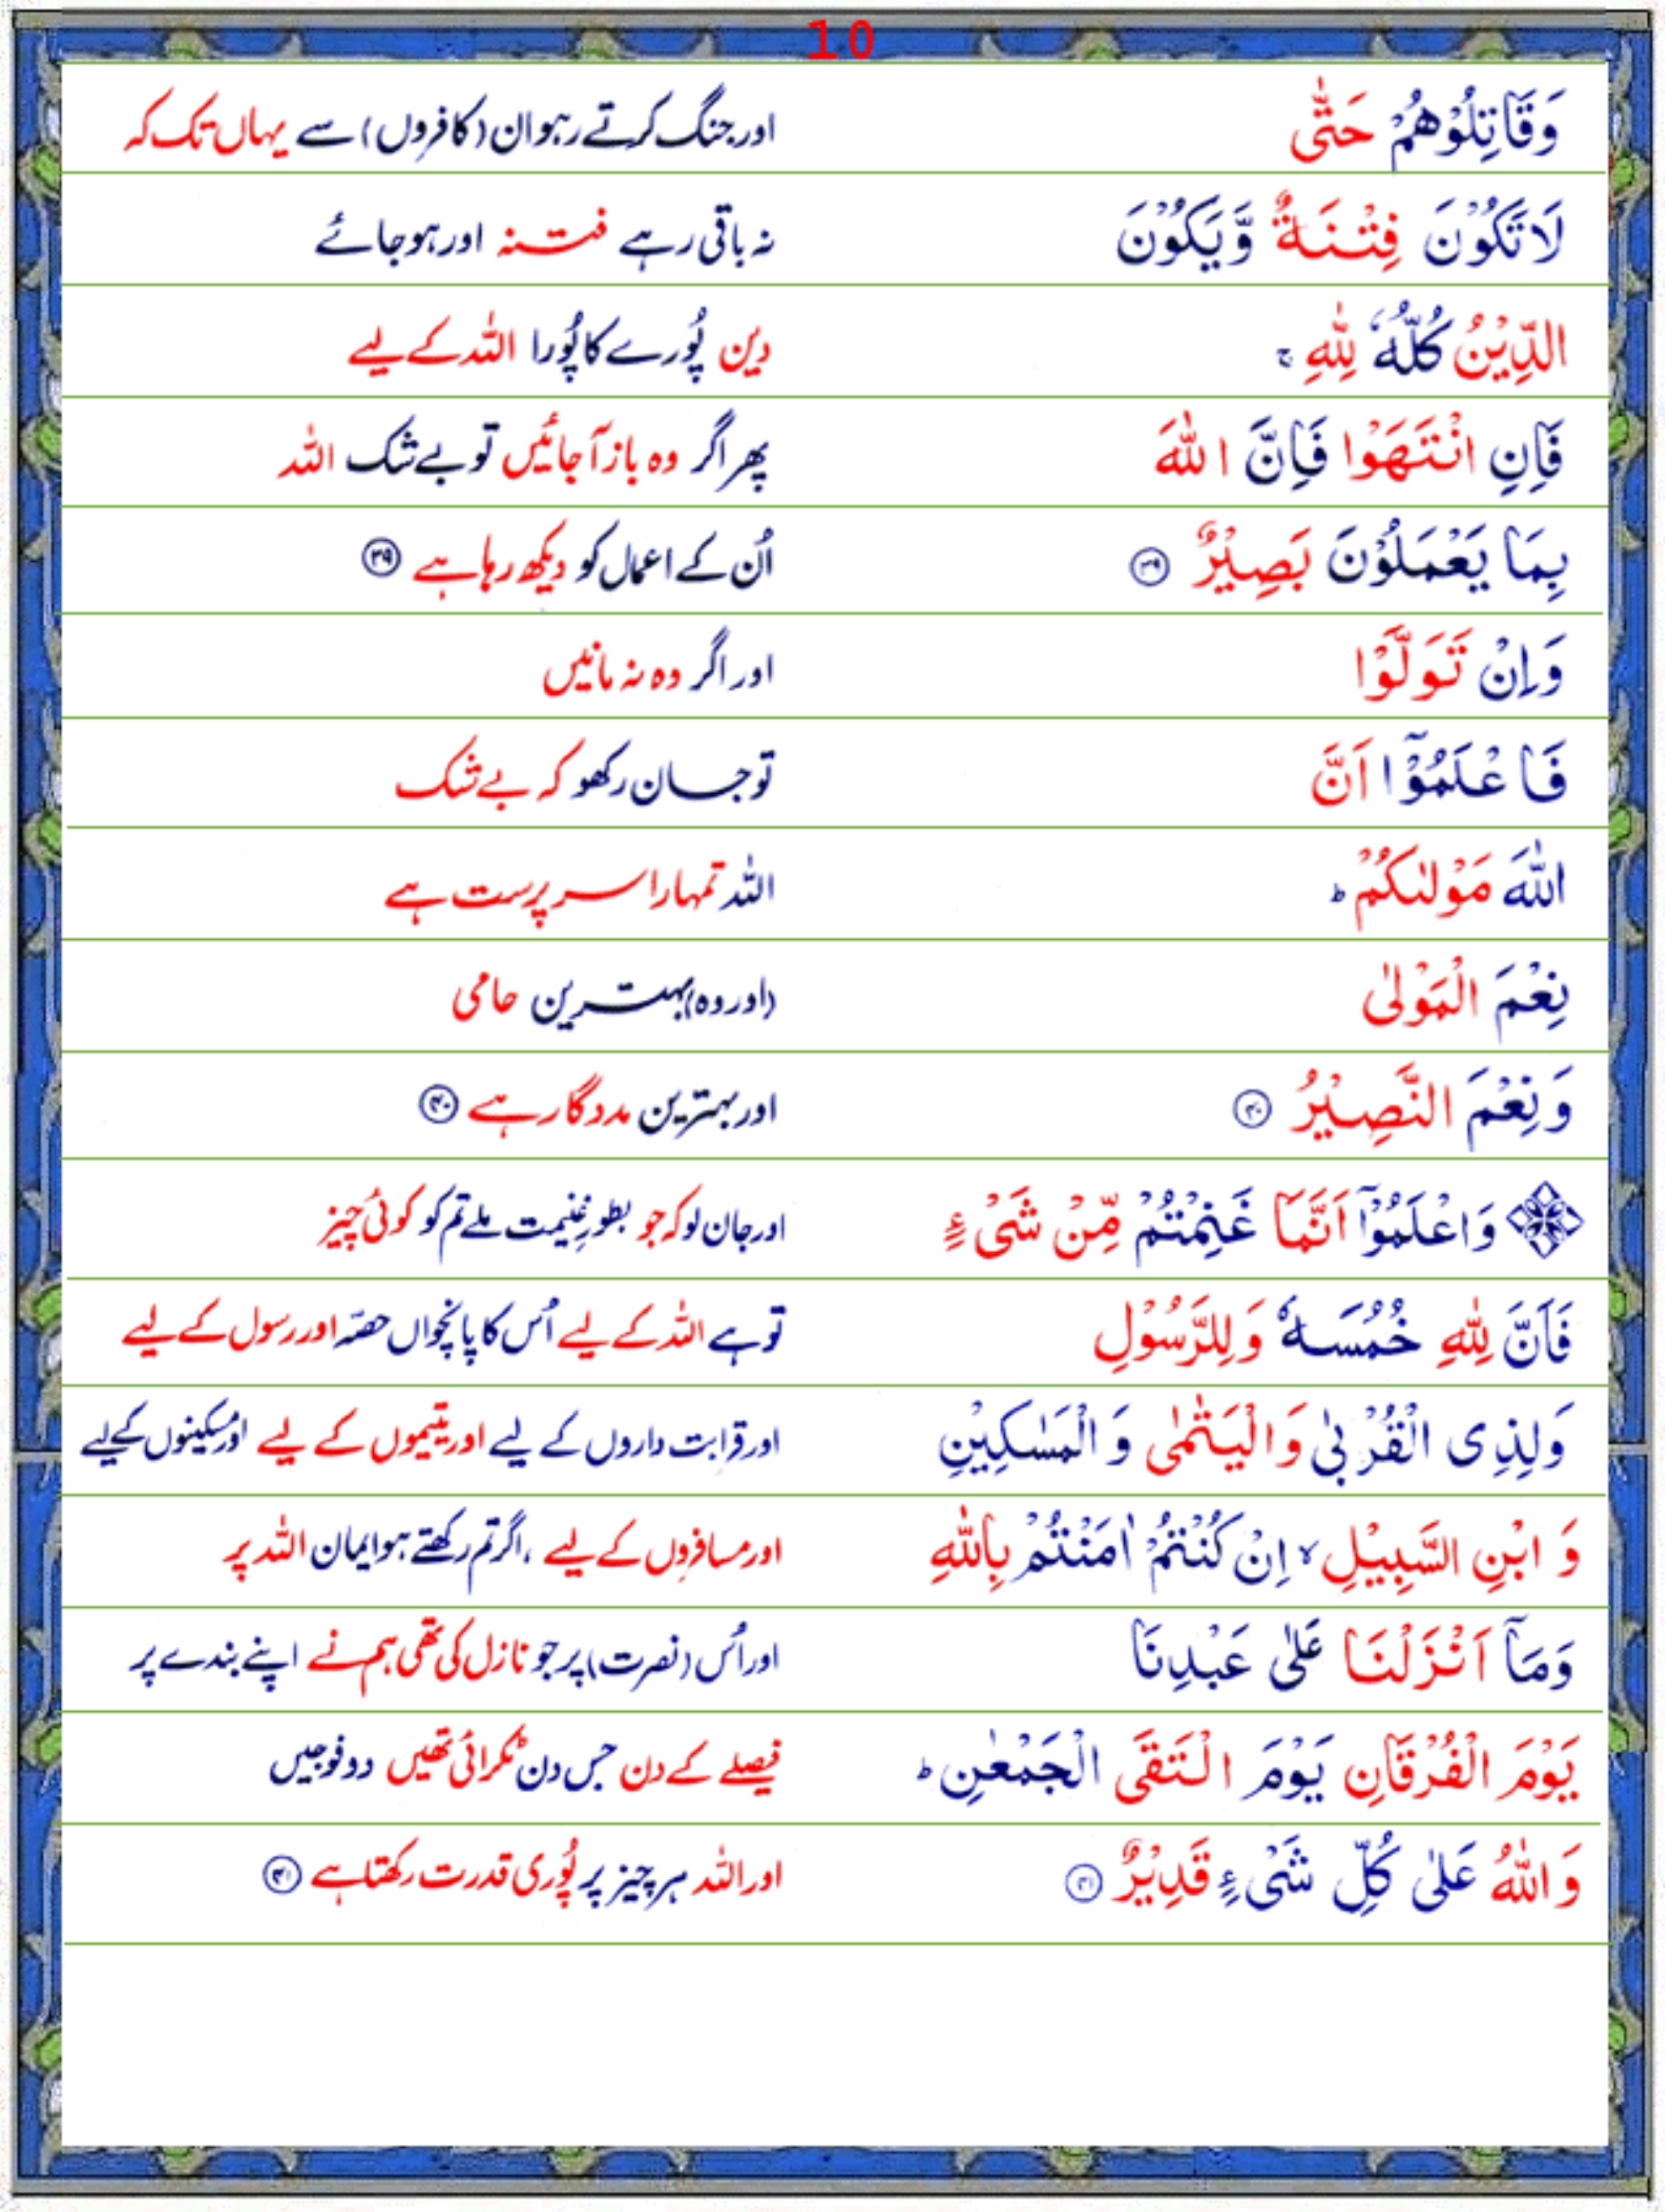 10
وَقَاتِلُوْهُمْ حَتّٰى اور جنگ کرتے رہو ان (کافروں) سے یہاں تک کہ
لَا تَكُوْنَ فِتْنَةٌ وَّيَكُوْنَ نہ باقی رہے فتنہ اور ہوجائے
الدِّيْنُ كُلُّهٗ لِلّٰهِ ۚ دین پُورے کا پُورا اللہ کے لیے
فَاِنِ انْتَهَوْا فَاِنَّ اللّٰهَ پھر اگر وہ باز آجائیں تو بے شک اللہ
بِمَا يَعْمَلُوْنَ بَصِيْرٌ ۝۳۹ اُن کے اعمال کو دیکھ رہا ہے ۝۳۹
وَاِنْ تَوَلَّوْا اور اگر وہ نہ مانیں
فَاعْلَمُوْۤا اَنَّ تو جان رکھو کہ بے شک
اللّٰهَ مَوْلٰىكُمْ ؕ اللہ تمہارا سرپرست ہے
نِعْمَ الْمَوْلٰى (اور وہ) بہترین حامی
وَنِعْمَ النَّصِيْرُ ۝۴۰ اور بہترین مددگار ہے ۝۴۰
وَاعْلَمُوْۤا اَنَّمَا غَنِمْتُمْ مِّنْ شَىْءٍ اور جان لو کہ جو بطورِ غنیمت ملے تم کو کوئی چیز
فَاَنَّ لِلّٰهِ خُمُسَهٗ وَلِلرَّسُوْلِ تو ہے اللہ کے لیے اُس کا پانچواں حصّہ اور رسول کے لیے
وَلِذِى الْقُرْبٰى وَالْيَتٰمٰى وَالْمَسٰكِيْنِ اور قرابت داروں کے لیے اور یتیموں کے لیے اور مسکینوں کے لیے
وَابْنِ السَّبِيْلِ ۙ اِنْ كُنْتُمْ اٰمَنْتُمْ بِاللّٰهِ اور مسافروں کے لیے ، اگر تم رکھتے ہو ایمان اللہ پر
وَمَاۤ اَنْزَلْنَا عَلٰى عَبْدِنَا اور اُس (نصرت) پر جو نازل کی تھی ہم نے اپنے بندے پر
يَوْمَ الْفُرْقَانِ يَوْمَ الْتَقَى الْجَمْعٰنِ ؕ فیصلے کے دن جس دن ٹکرائی تھیں دو فوجیں
وَاللّٰهُ عَلٰى كُلِّ شَىْءٍ قَدِيْرٌ ۝۴۱ اور اللہ ہر چیز پر پُوری قدرت رکھتا ہے ۝۴۱